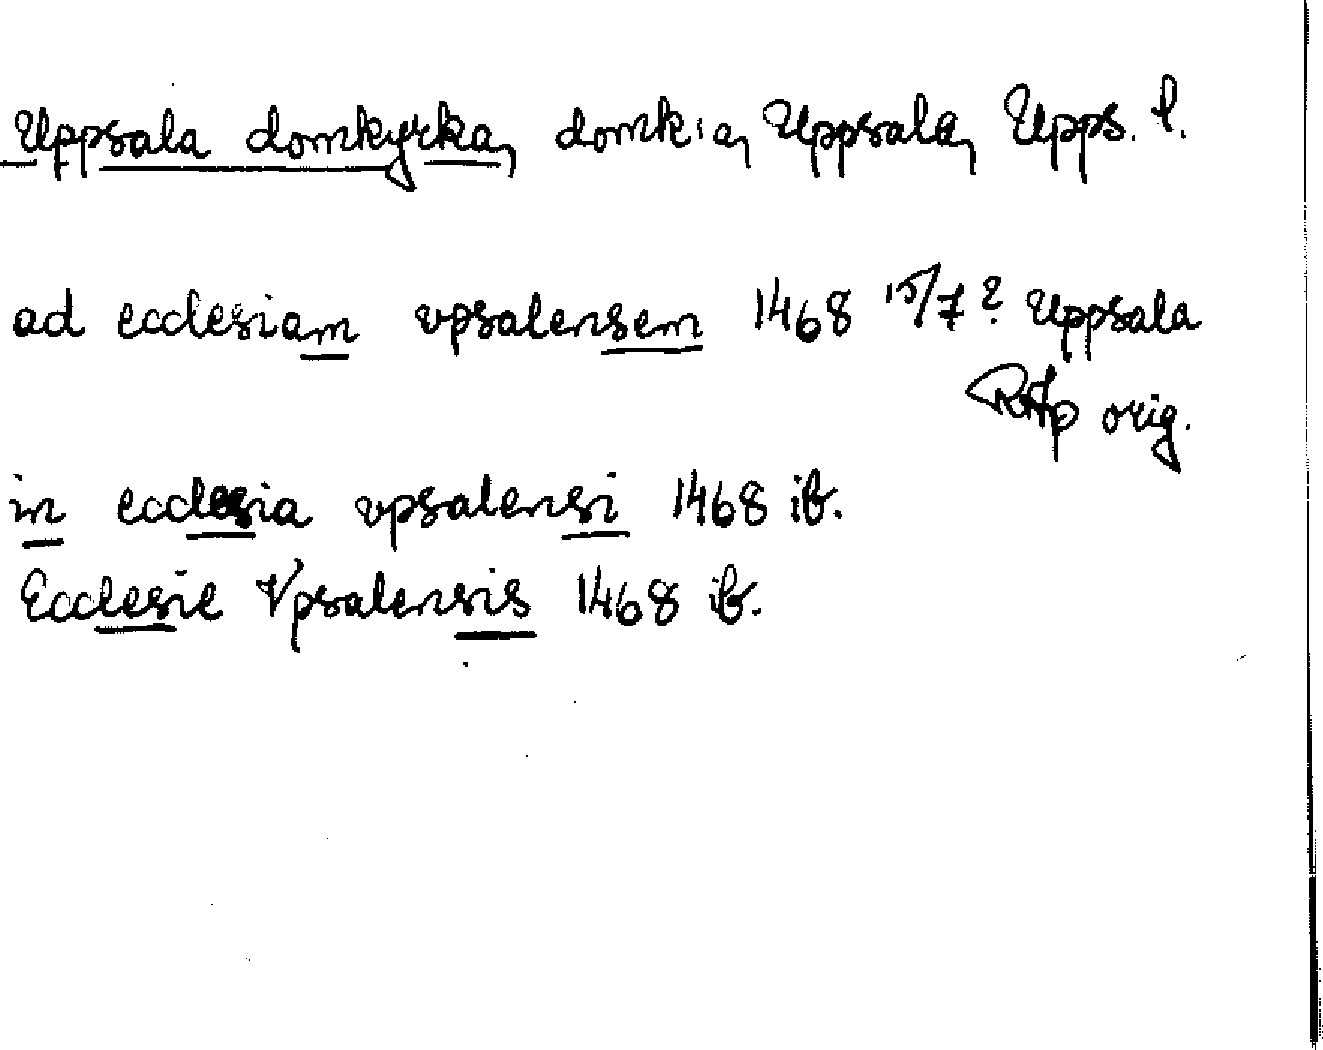 Uppsala domkyrka, domk:a, Uppsala, Upps. l.
ad ecclesiam vpsalensem 1468 15/7? Uppsala
RAp orig.
in ecclesia vpsalensi 1468 ib.
Ecclesie Vpsalensis 1468 ib.